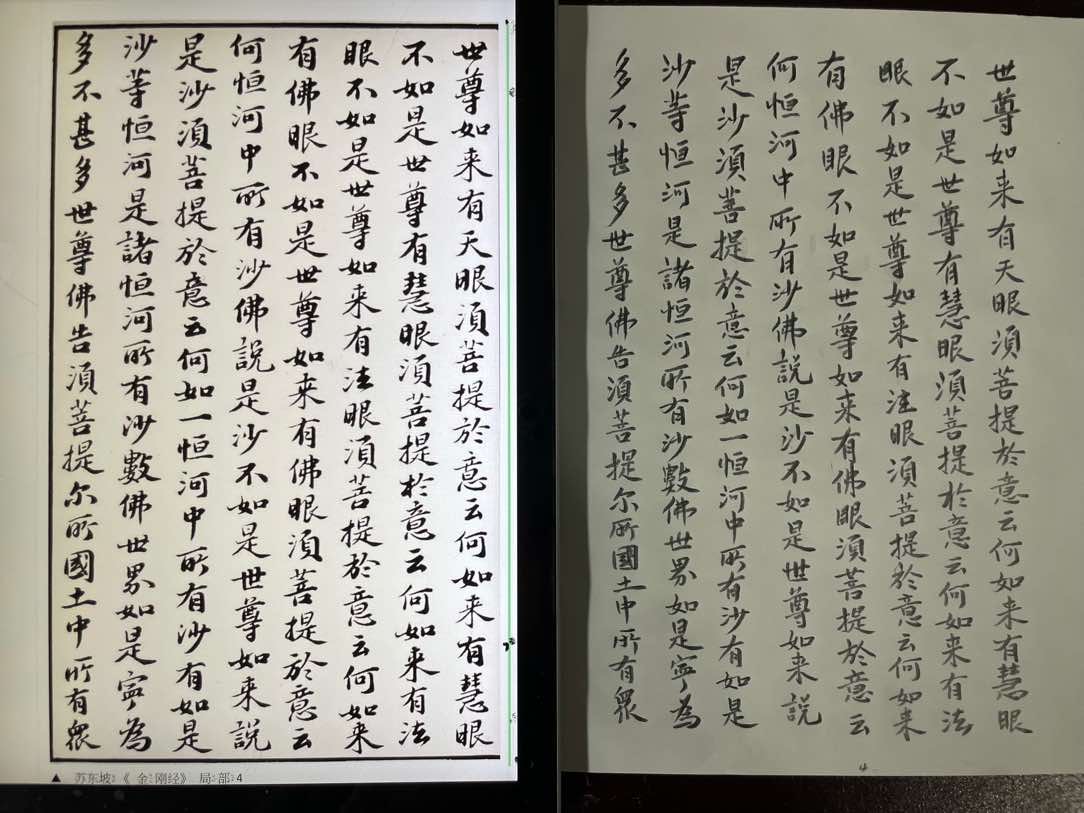 世尊如来有天眼須菩提於意云何如来有慧眼
不如是世尊有慧眼須菩提於意云何如来有法
眼不如是世尊如来有法眼須菩提於意云何如来
有佛眼不如是世尊如来有佛眼須菩提於意云
何恒河中所有沙佛説是沙不如是世尊如来説
是沙須菩提於意云何如一恒河中所有沙有如是
沙等恒河是諸恒河所有沙數佛世界如是寧為
多不甚多世尊佛告須菩提尔所國土中所有衆
▲ 苏东坡:《 金 刚经》 局 部:4
世尊如来有天眼須菩提於意云何如来有慧眼
不如是世尊有慧眼須菩提於意云何如来有法
眼不如是世尊如来有注眼須菩提於意云何如来
有佛眼不如是世尊如来有佛眼須菩提於意云
何恒河中所有沙佛説是沙不如是世尊如来説
是沙須菩提於意云何如一恒河中所有沙有如是
沙等恒河是諸恒河所有沙數佛世界如是寧為
多不甚多世尊佛告須菩提尔所國土中所有衆
4